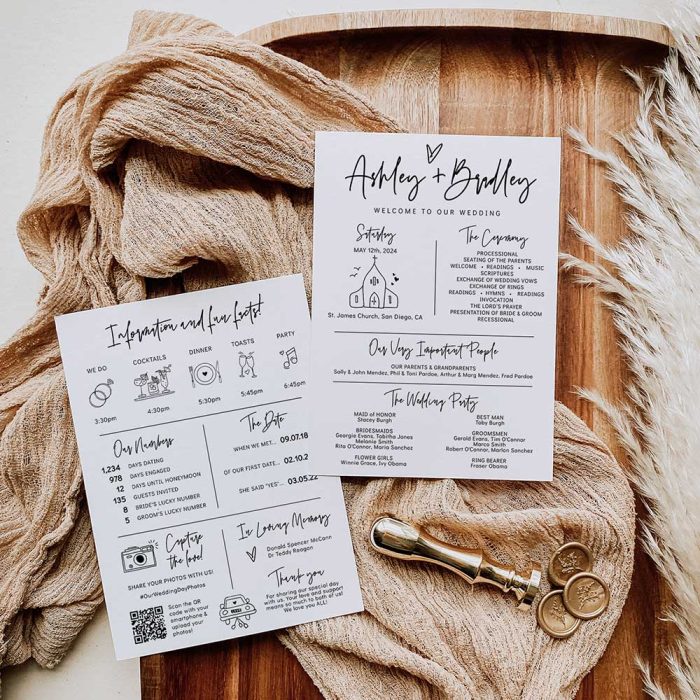 Ashley + Bradley
WELCOME TO OUR WEDDING
Saturday
MAY 12th, 2024
St. James Church, San Diego, CA
The Ceremony
PROCESSIONAL
SEATING OF THE PARENTS
WELCOME • READINGS • MUSIC
SCRIPTURES
EXCHANGE OF WEDDING VOWS
EXCHANGE OF RINGS
READINGS • HYMNS • READINGS
INVOCATION
THE LORD'S PRAYER
PRESENTATION OF BRIDE & GROOM
RECESSIONAL
Our Very Important People
OUR PARENTS & GRANDPARENTS
Sally & John Mendez, Phil & Toni Pardoe, Arthur & Marg Mendez, Fred Pardoe
The Wedding Party
MAID of HONOR
Stacey Burgh
BRIDESMAIDS
Georgie Evans, Tabitha Jones
Melanie Smith
Rita O'Connor, Maria Sanchez
FLOWER GIRLS
Winnie Grace, Ivy Obama
BEST MAN
Toby Burgh
GROOMSMEN
Gerald Evans, Tim O'Connor
Marco Smith
Robert O'Connor, Marlon Sanchez
RING BEARER
Fraser Obama
Information and Fun Facts!
WE DO
COCKTAILS
DINNER
TOASTS
PARTY
3:30pm
4:30pm
5:30pm
5:45pm
6:45pm
Our Numbers
1,234 DAYS DATING
978 DAYS ENGAGED
12 DAYS UNTIL HONEYMOON
135 GUESTS INVITED
8 BRIDE'S LUCKY NUMBER
5 GROOM'S LUCKY NUMBER
The Date
WHEN WE MET... 09.07.18
OF OUR FIRST DATE... 02.10.2
SHE SAID "YES"... 03.05.22
Capture
the love!
SHARE YOUR PHOTOS WITH US!
#OurWeddingDayPhotos
Scan the QR
code with your
smartphone &
upload your
photos!
In Loving Memory
Donald Spencer McCann
Dr Teddy Reagan
Thank you
For sharing our special day
with us. Your love and support
means so much to both of us!
We love you ALL!